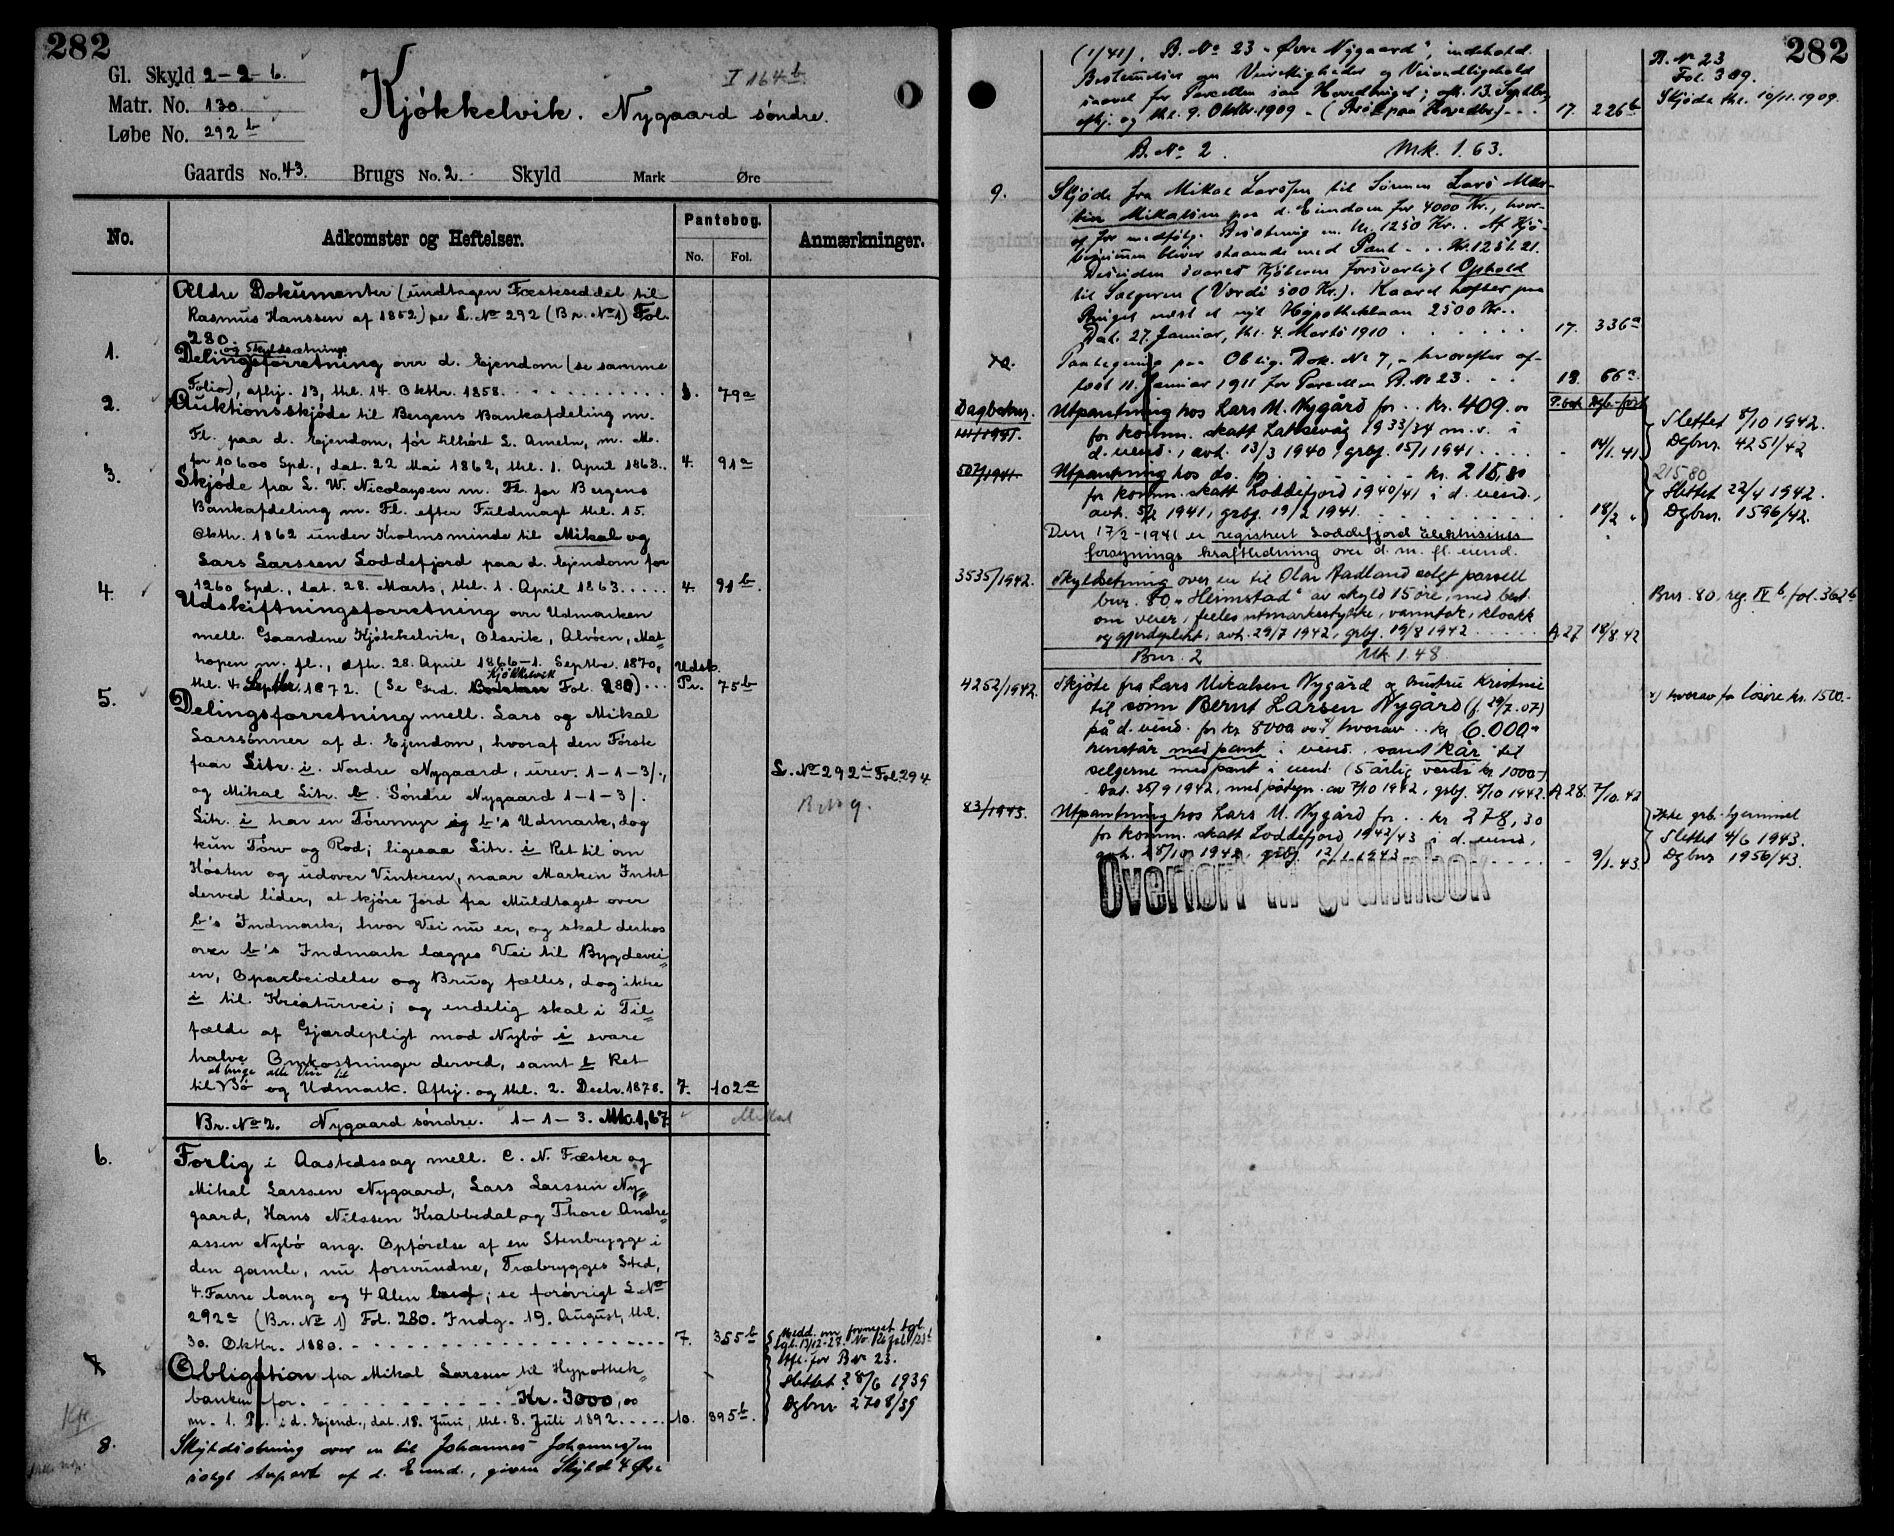 282
Gl. Skyld 2-2-6.
Matr. No. 130.
Løbe No. 292 b
Kjökkelvik. Nygaard söndre.
I 164 b
Gaards No. 43. Brugs No. 2. Skyld Mark Øre
No.
Adkomster og Heftelser.
Pantebog.
No. Fol.
Anmærkninger.
Ældre Dokumenter (undtagen Fæsteseddel til
Rasmus Hanssen af 1852) se L. No 292 (Br. No 1) Fol.
280.
og Skyldsætnings
1. Delingsforretning over d. Ejendom (se samme
Folio), afhj. 13, thl. 14 Oktbr. 1858. 3. 79a
2. Auktionsskjöde til Bergens Bankafdeling m.
Fl. paa d. Ejendom, för tilhört L. Ameln, m. M.
for 10600 Spd., dat. 22 Mai 1862, thl. 1. April 1863. 4. 91a
3. Skjöde fra L. W. Nicolaysen m. Fl. for Bergens
Bankafdeling m. Fl. efter Fuldmagt thl. 15.
Oktbr. 1862 under Kralmsminde til Mikal og
Lars Larssen Loddefjord paa d. Ejendom for
1260 Spd., dat. 28. Marts, thl. 1. April 1863. 4. 91b
4. Udskiftningsforretning over Udmarken
mell. Gaardene Kjökkelvik, Olsvik, Alvöen, Mat-
hopen m. fl., afh. 28. April 1866-1. Septbr. 1870, Udsk.
Kjökkelvik
thl. 4. Septbr. 1872. (Se Grd. Fol. 280) Pr. 75b
5. Delingsforretning mell. Lars og Mikal
Larssönner af d. Ejendom, hvoraf den Förste
faar Litr. i. Nordre Nygaard, urev. 1-1-3/., L. No 292 i Fol. 294
og Mikal Litr. b. Söndre Nygaard 1-1-3/.
Litr. i har en Törvmyr i b's Udmark, dog
kun Törv og Rod; ligesaa Litr. i Ret til om
Hösten og udover Vinteren, naar Marken Intet
derved lider, at kjöre Jord fra Muldtaget over
b's Indmark, hvor Vei nu er, og skal derhos
over b's Indmark lægges Vei til Bygdevei-
en, Oparbeidelse og Brug fælles, dog ikke
i til Kreaturvei; og endelig skal i Til-
fælde af Gjærdepligt mod Nybö i svare
halve Omkostninger derved, samt b Ret
at bruge alle Veie til
til Bö og Udmark. Afhj. og thl. 2. Decbr. 1878. 7. 102a
Br. No 2. Nygaard söndre. 1-1-3. Mk. 1,67 Mikal
6. Forlig i Aastedssag mell. C. N. Fæster og
Mikal Larssen Nygaard, Lars Larssen Ny-
gaard, Hans Nilssen Krabbedal og Thore Andre-
assen Nybö ang. Opförelse af en Stenbrygge i
den gamle, nu forsvundne, Træbrygges Sted,
4. Favne lang og 4 Alen bred; se forövrigt L. No
292a (Br. No 1) Fol. 280. Indg. 19. August, thl.
30. Oktbr. 1880. 7. 355b
7 Obligation fra Mikal Larssen til Hypothek-
banken for Kr. 3000,00
m. 1. Pr. i d. Ejend., dat. 18. Juni, thl. 8. Juli 1892. 10. 395b.
Utfl. for B No 23.
Slettet 8/6 1939
Dgbnr 2708/39
8. Skyldsætning over en til Johannes Johannessen
solgt Anpart af d. Eiend., given Skyld 4 Øre
282
(1/41), B. No 23 "Øvre Nygaard", indehold.
Bestemmelser om Veirettigheder og Veivedligehold
saavel for Parcellen som Hovedbruget; afh. 13. Septbr.,
afhj. og thl. 9. Oktbr. 1909 17. 226b
B. No 23
Fol. 309.
Skjöde thl. 10/11. 1909.
B. No 2. Mk. 1.63.
9. Skjöde fra Mikal Larssen til Sönnen Lars Mar-
tin Mikalsen paa d. Eiendom for 4000 Kr., hvor-
af for medfölg. Besætning m. m. 1250 Kr. Af Kjö-
besummen bliver staaende med Pant Kr. 1251.21.
Desuden svares Kjöberen forsvarligt Ophold
til Sælgeren (Værdi 500 Kr.). Kaaret hefter paa
Bruget næst et nyt Hypotheklaan 2500 Kr.
Dat. 27. Januar, thl. 4. Marts 1910 17. 336a
10. Paategning paa Oblig. Dok. No 7, hvorefter af-
löst 11. Januar 1911 for Parcellen B. No 23. 18. 66a
Dagboknr. P.bok Dgb.-ført
111/1941. Utpantning hos Lars M. Nygård for kr. 409.00
for komm. skatt Laksevåg 1933/34 m. v. i
d. eiend., avh. 13/3 1940, grbf. 15/1 1941. 14/1.41
Slettet 8/10 1942.
Dgbnr. 4251/42
507/1941. Utpantning hos do. for kr. 215,80
for komm. skatt Loddefjord 1940/41 i d. eiend.,
avh. 5/2 1941, grbf. 19/2 1941. 18/2 "
215,80
Slettet 22/4 1942.
Dgbnr. 1596/42.
Den 17/2-1941 er registrert Loddefjord Elektrisitets
forsynings kraftledning over d. m. fl. eiend.
3535/1942. Skyldsetning over en til Olav Aadland solgt parsell
bnr. 80, "Heimstad" av skyld 15 øre, med best.
om veier, felles utmarksstykke, vanntak, kloakk
og gjerdeplikt, avh. 29/7 1942, grbf. 19/8 1942 A 27 18/8.42
Bnr. 80, reg. IV b, fol. 362b
Bnr. 2 Mk 1.48
4252/1942. Skjöte fra Lars Mikalsen Nygård og hustru Kristine
til sønn Bernt Larsen Nygård (f. 29/7.07)
på d. eiend. for kr 8000.00 x) hvorav kr 6.000.-
henstår med pant i eiend. samt kår til
selgerne med pant i eiend. (5 årlig verdi kr 1000-)
Dat. 25/9 1942, med påtegn. av 7/10 1942, grbf. 8/10 1942. A 28. 7/10.42
x) hvorav for løsøre kr. 1500.-
83/1943. Utpantning hos Lars M. Nygård for kr 278,30
for komm. skatt Loddefjord 1942/43 i d. eiend,
avh. 28/10 1942, grbf. 12/1 1943 9/1.43
Ikke grb. hjemmel
Slettet 4/6 1943.
Dgbnr 1956/43.
Overført til grunnbok